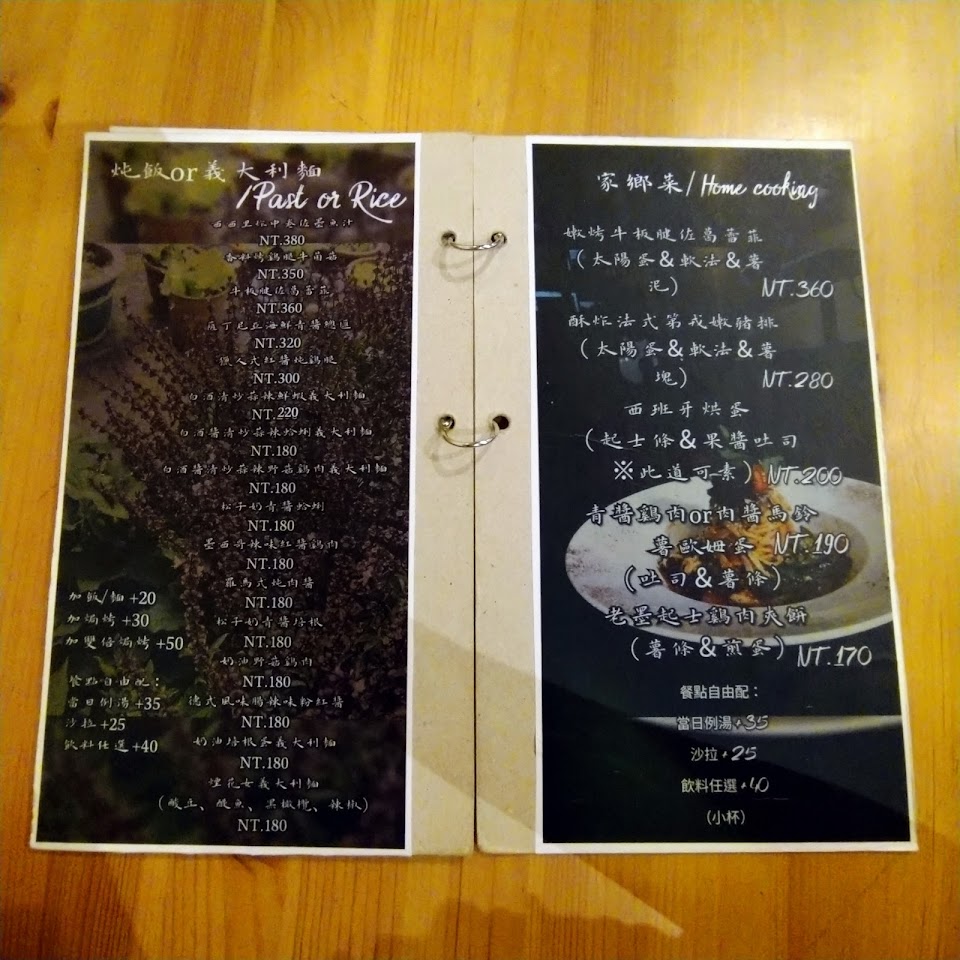 炖飯or義大利麵
/Past or Rice
西西里松中卷佐墨魚汁
NT.380
香料烤鷄腿牛菌菇
NT.350
牛板腱佐葛蕾菲
NT.360
薩丁尼亞海鮮青醬總匯
NT.320
獵人式紅醬炖鷄腿
NT.300
白酒清炒蒜辣鮮蝦義大利麵
NT.220
白酒醬清炒蒜辣蛤蜊義大利麵
NT.180
白酒醬清炒蒜辣野菇鷄肉義大利麵
NT.180
松子奶青醬蛤蜊
NT.180
墨西哥辣味紅醬鷄肉
NT.180
羅馬式炖肉醬
NT.180
松子奶青醬培根
NT.180
奶油野菇鷄肉
NT.180
德式風味腸辣味粉紅醬
NT.180
奶油培根蛋義大利麵
NT.180
煙花女義大利麵
(酸豆、醍魚、黑橄欖、辣椒)
NT.180
加飯/麵 +20
加焗烤 +30
加雙倍焗烤 +50
餐點自由配：
當日例湯 +35
沙拉 +25
飲料任選 +40
家鄉菜/Home cooking
嫩烤牛板腱佐葛蕾菲
(太陽蛋&軟法&薯
泥) NT.360
酥炸法式第戎嫩豬排
(太陽蛋&軟法&薯
塊) NT.280
西班牙烘蛋
(起士條&果醬吐司
※此道可素) NT.200
青醬鷄肉or肉醬馬鈴
薯歐姆蛋 NT.190
(吐司&薯條)
老墨起士鷄肉夾餅
(薯條&煎蛋) NT.170
餐點自由配：
當日例湯+35
沙拉+25
飲料任選+40
(小杯)